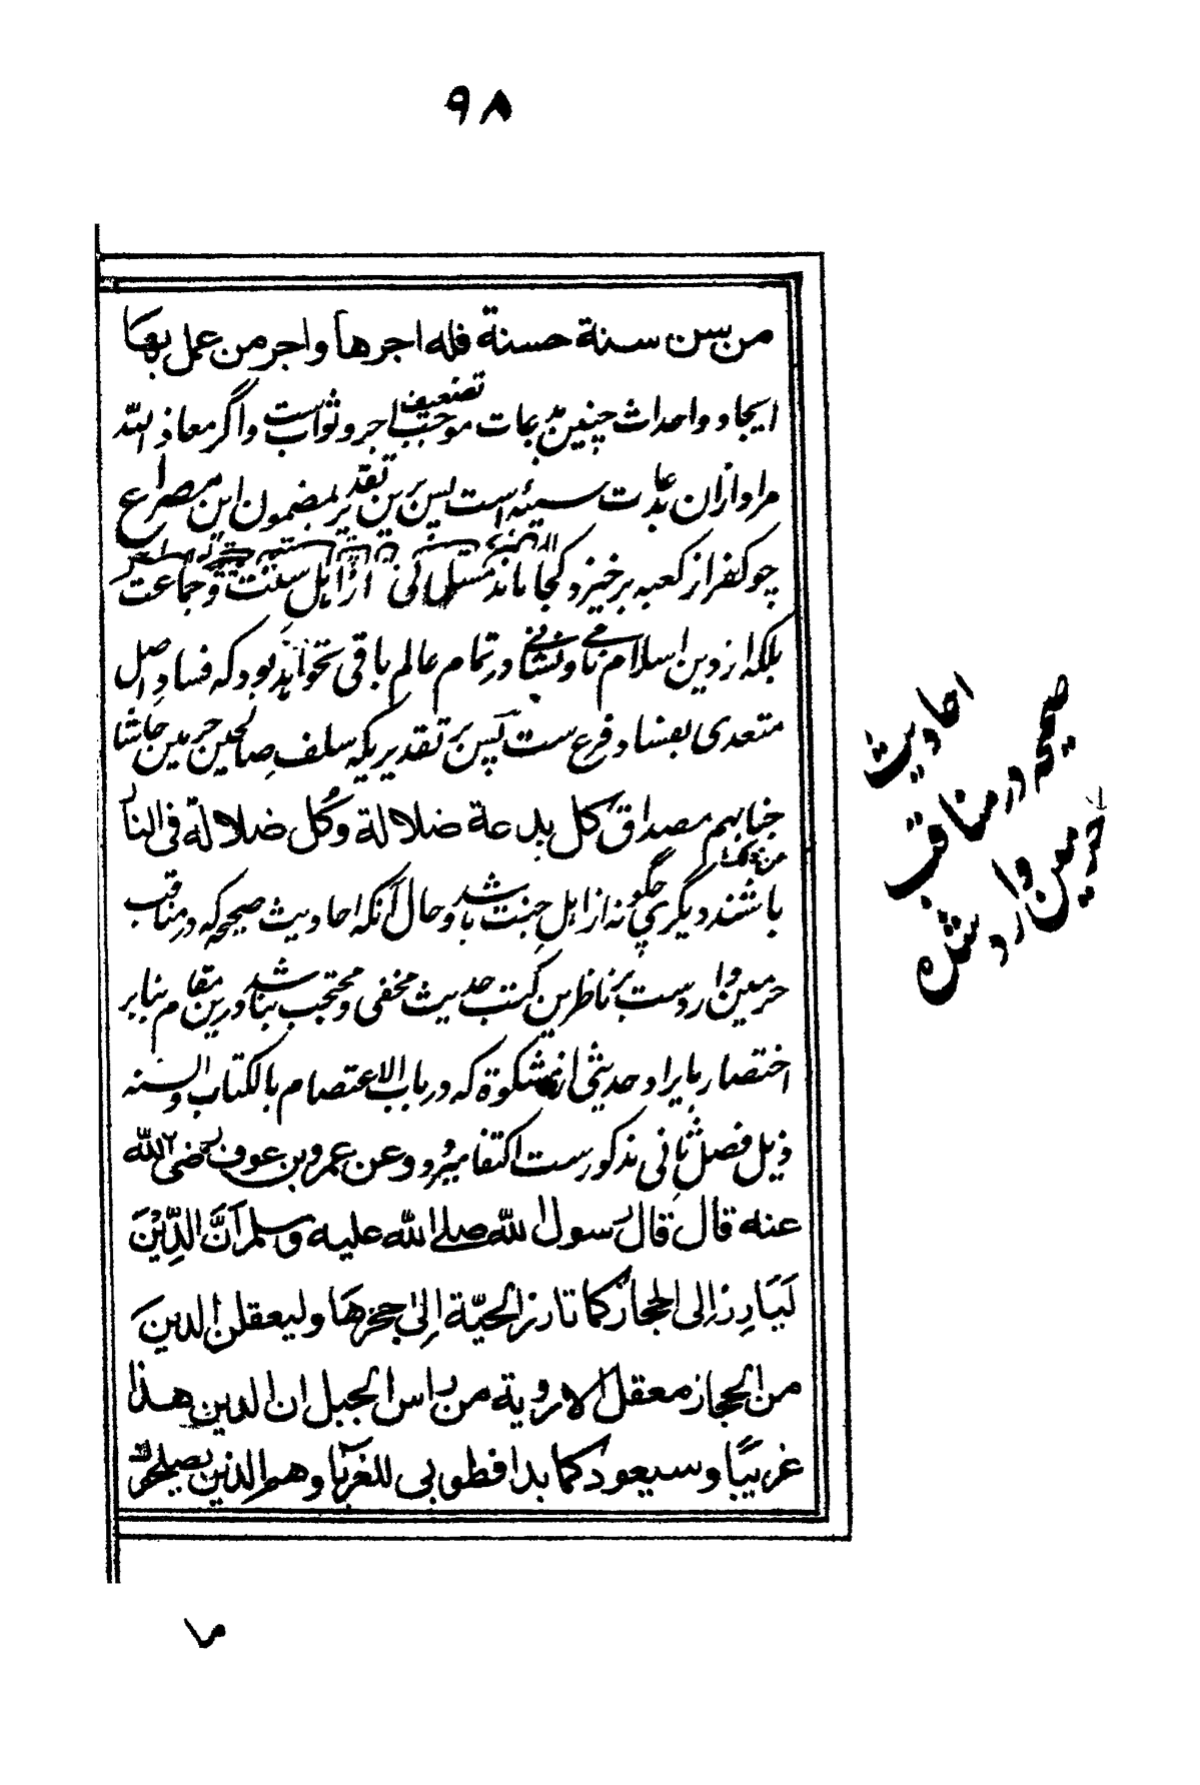 ٩٨
من سن سنة حسنة فله اجرها واجر من عمل بها
ایجاد واحداث چنین بدعات موجب تضعیف اجر وثواب ست واگر معاذ الله
مراد ازان بدعات سیئه است پس برین تقدیر بمضمون این مصراع
چو کفر از کعبه برخیزد کجا ماند مسلمانی از اهل سنت وجماعت
بلکه از دین اسلام نامی ونشانی در تمام عالم باقی نخواهد بود که فساد اصل
متعدی بفساد فرع ست پس بر تقدیریکه سلف صالحین حرمین حاشا
جنابهم مصداق کل بدعة ضلالة وکل ضلالة فی النار
باشند دیگری چگونه از اهل جنت باشد وحال آنکه احادیث صحیحه که در مناقب
حرمین وارد ست بر ناظرین کتب حدیث مخفی ومحتجب نباشد ودرین مقام بنابر
اختصار بایراد حدیثی از مشکوة که در باب الاعتصام بالکتاب والسنه
ذیل فصل ثانی مذکور ست اکتفا میرود وعن عمرو بن عوف رضی الله
عنه قال قال رسول الله صلے الله علیه وسلم اَنَّ الدِّیْنَ
لَیَاَرِزُ اِلی الحجاز کما تارز الحیّة اِلیٰ جحرهَا ولیعقلن الدینَ
من الحجاز معقل الارویة من راس الجبل ان الدین هذا
غریبًا وسیعود کما بدا فطوبی للغربا وهم الذین یصلحون
احادیث
صحیحه در مناقب
حرمین وارد شده
ما